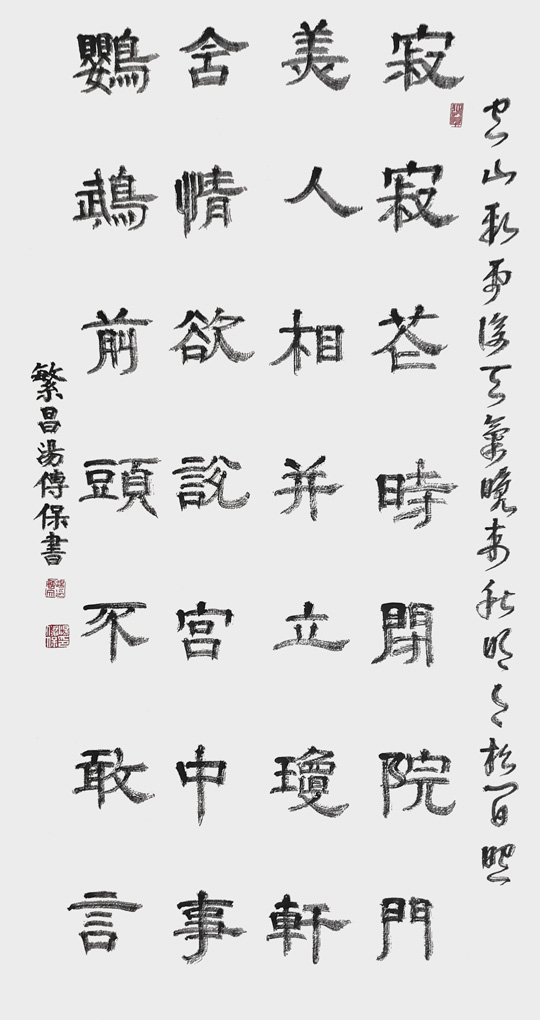 空山新雨後天氣晚來秋明月松間照
寂寂花時閉院門
美人相并立瓊軒
含情欲說宮中事
鸚鵡前頭不敢言
繁昌湯傳保書